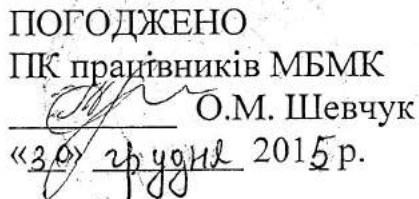 ПОГОДЖЕНО
ПК працівників МБМК
О.М. Шевчук
«30» грудня 2015 р.